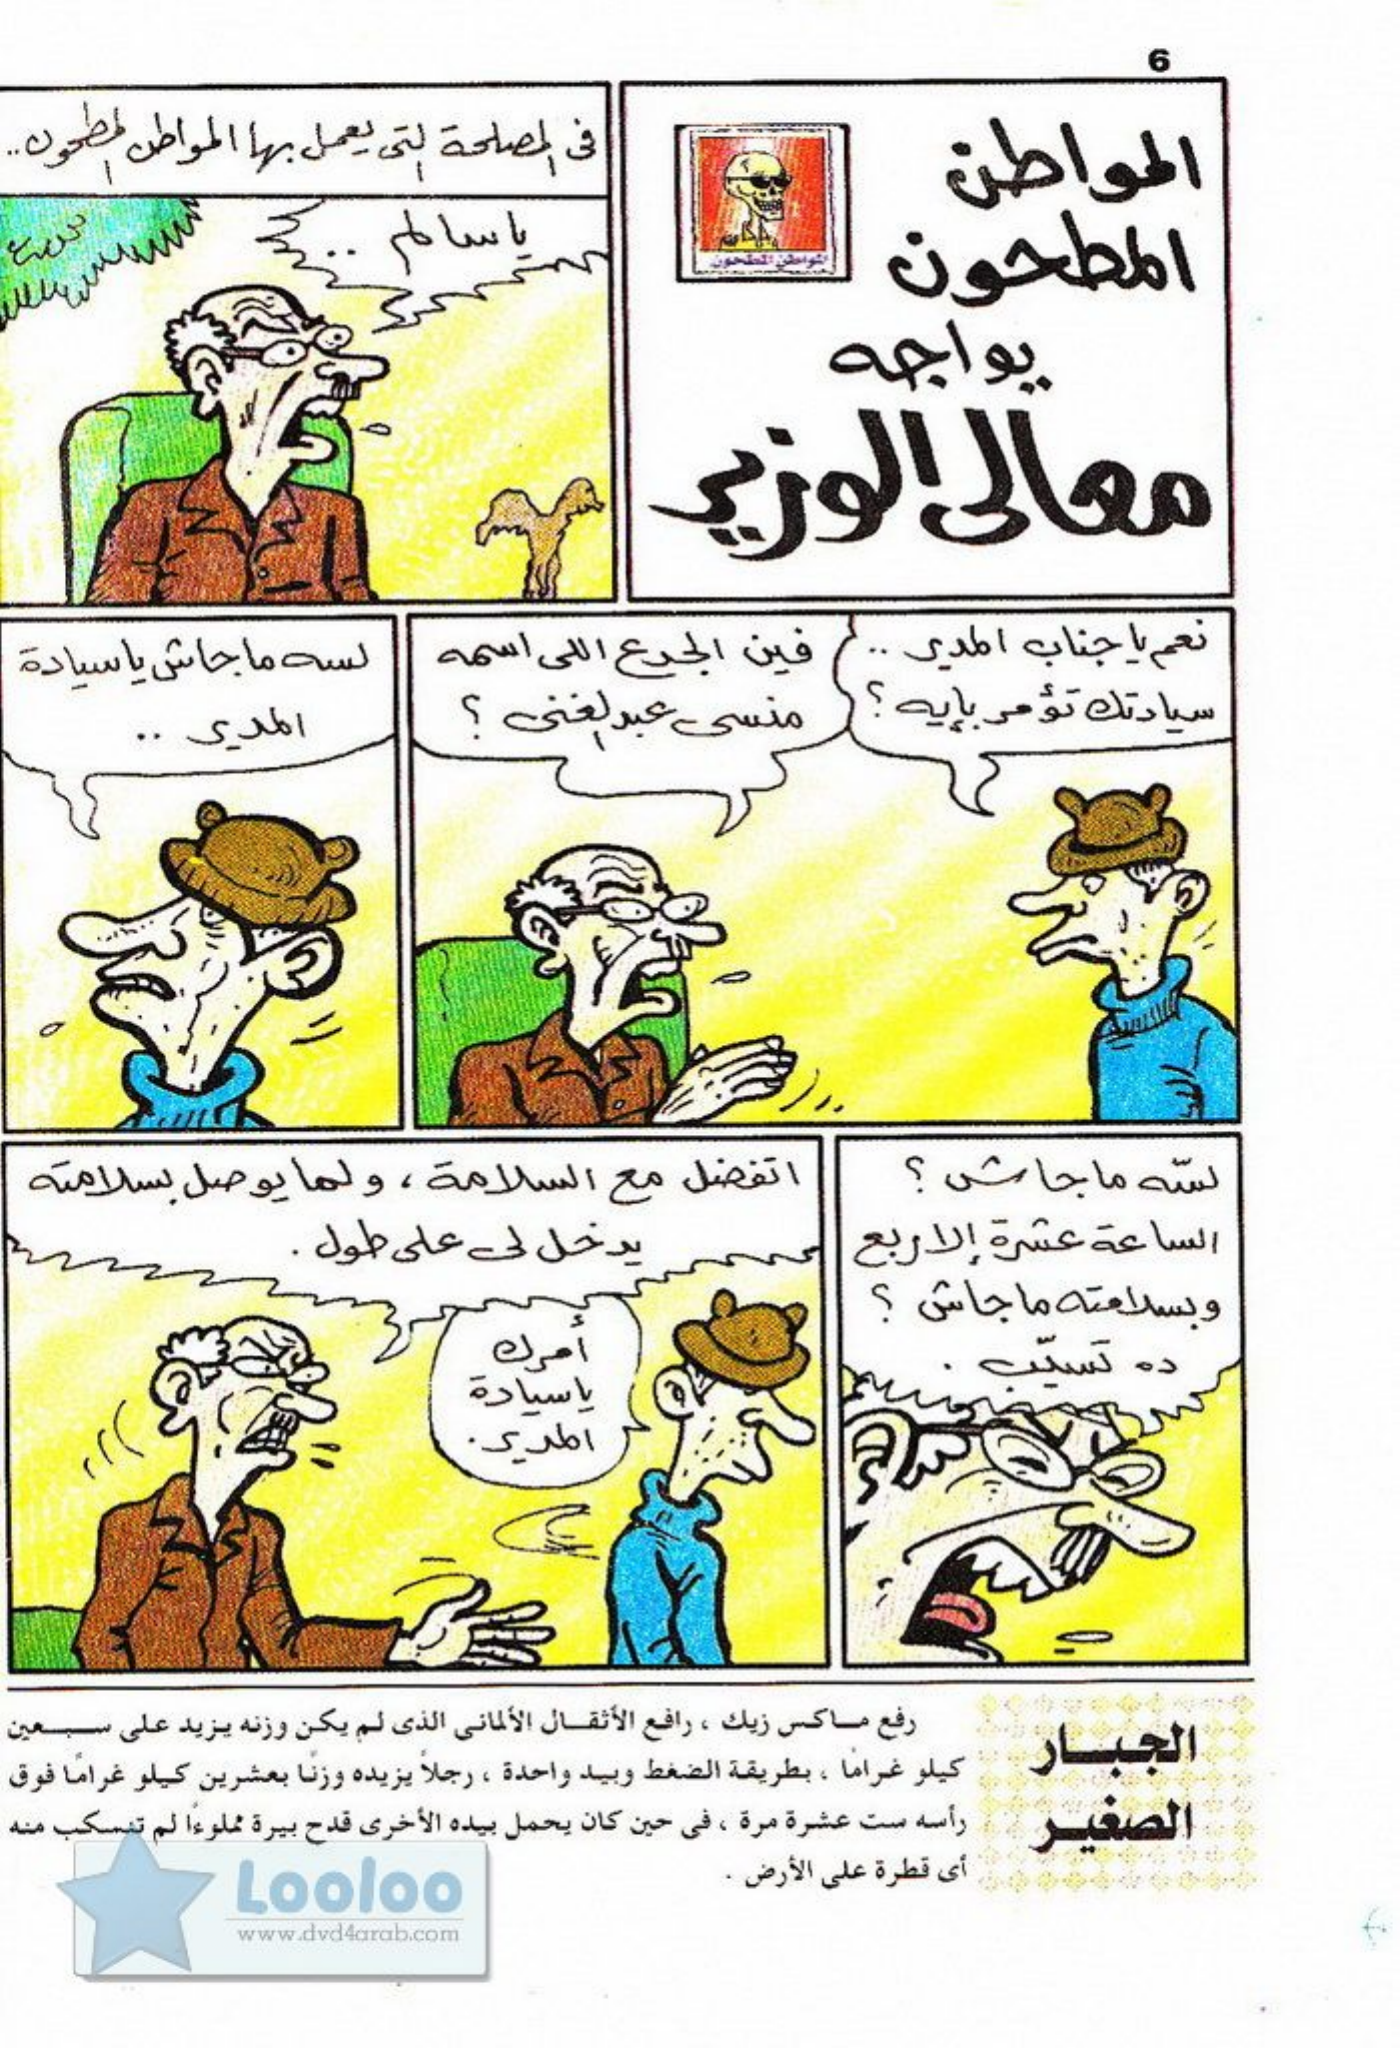 6
المواطن
المطحون
يواجه
معالى الوزير
المواطن المطحون
فى المصلحة التى يعمل بها المواطن المطحون..
يا سالم ..
نعم يا جناب المدير ..
سيادتك تؤمر بإيه ؟
فين الجدع اللى اسمه
منسى عبد الغنى ؟
لسه ما جاش يا سيادة
المدير ..
لسّه ما جاش ؟
الساعة عشرة إلا ربع
وبسلامته ما جاش ؟
ده تسيّب .
اتفضل مع السلامة ، ولما يوصل بسلامته
يدخل لى على طول .
أمرك
يا سيادة
المدير .
الجبــار
الصغيــر
رفع مــاكـس زيك ، رافع الأثقــال الألمانى الذى لم يكن وزنه يزيد على سـبـعين
كيلو غرامًا ، بطريقة الضغط وبيد واحدة ، رجلاً يزيده وزنًا بعشرين كيلو غرامًا فوق
رأسه ست عشرة مرة ، فى حين كان يحمل بيده الأخرى قدح بيرة مملوءًا لم تنسكب منه
أى قطرة على الأرض .
Looloo
www.dvd4arab.com